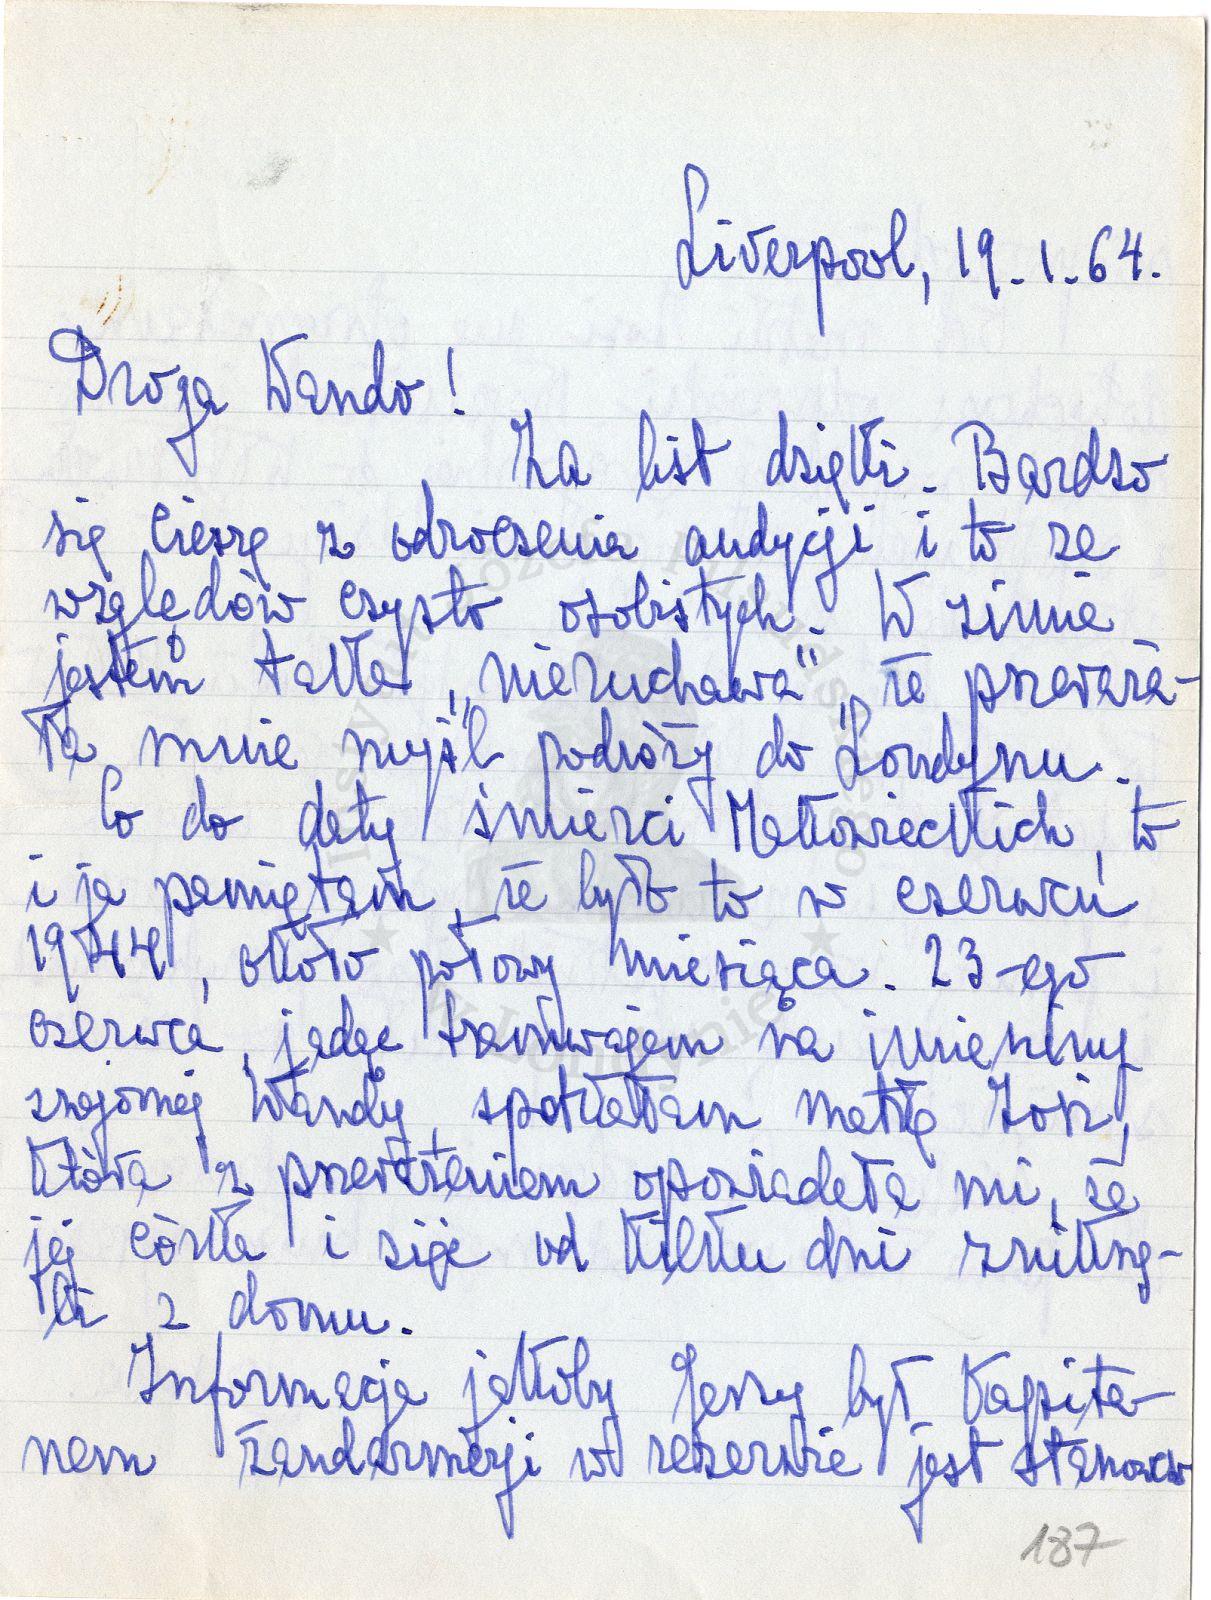 Liverpool, 19.1.64.
Droga Wando!
Za list dzięki. Bardzo
się cieszę z odroczenia audycji i to ze
względów czysto osobistych. W zimie
jestem taka „nieruchawa", że przeraża-
ła mnie myśl podróży do Londynu.
Co do daty śmierci Makowieckich, to
i ja pamiętam, że było to w czerwcu
1944, około połowy miesiąca. 23-ego
czerwca, jadąc tramwajem na imieniny
znajomej Wandy, spotkałam matkę Zosi,
która z przerażeniem opowiadała mi, że
jej córka i zięć od kilku dni zniknę-
li z domu.
Informacja jakoby Jerzy był kapita-
nem żandarmerji w rezerwie jest stanowczo
187
Instytut Józefa Piłsudskiego
w Londynie